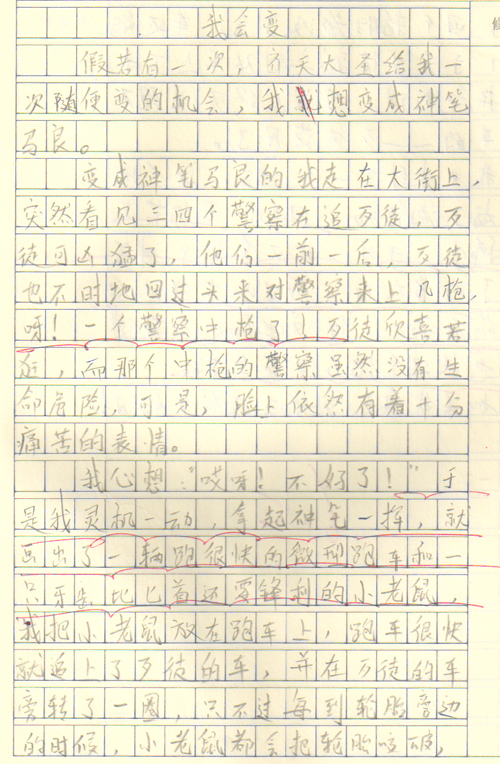 我会变
假若有一次，齐天大圣给我一
次随便变的机会，我想变成神笔
马良。
变成神笔马良的我走在大街上，
突然看见三四个警察在追歹徒，歹
徒可凶猛了，他们一前一后，歹徒
也不时地回过头来对警察来上几枪，
呀！一个警察中枪了！歹徒欣喜若
狂，而那个中枪的警察虽然没有生
命危险，可是，脸上依然有着十分
痛苦的表情。
我心想："哎呀！不好了！"于
是我灵机一动，拿起神笔一挥，就
画出了一辆跑很快的微型跑车和一
只牙齿比匕首还要锋利的小老鼠，
我把小老鼠放在跑车上，跑车很快
就追上了歹徒的车，并在歹徒的车
旁转了一圈，只不过每到轮胎旁边
的时候，小老鼠都会把轮胎咬破，